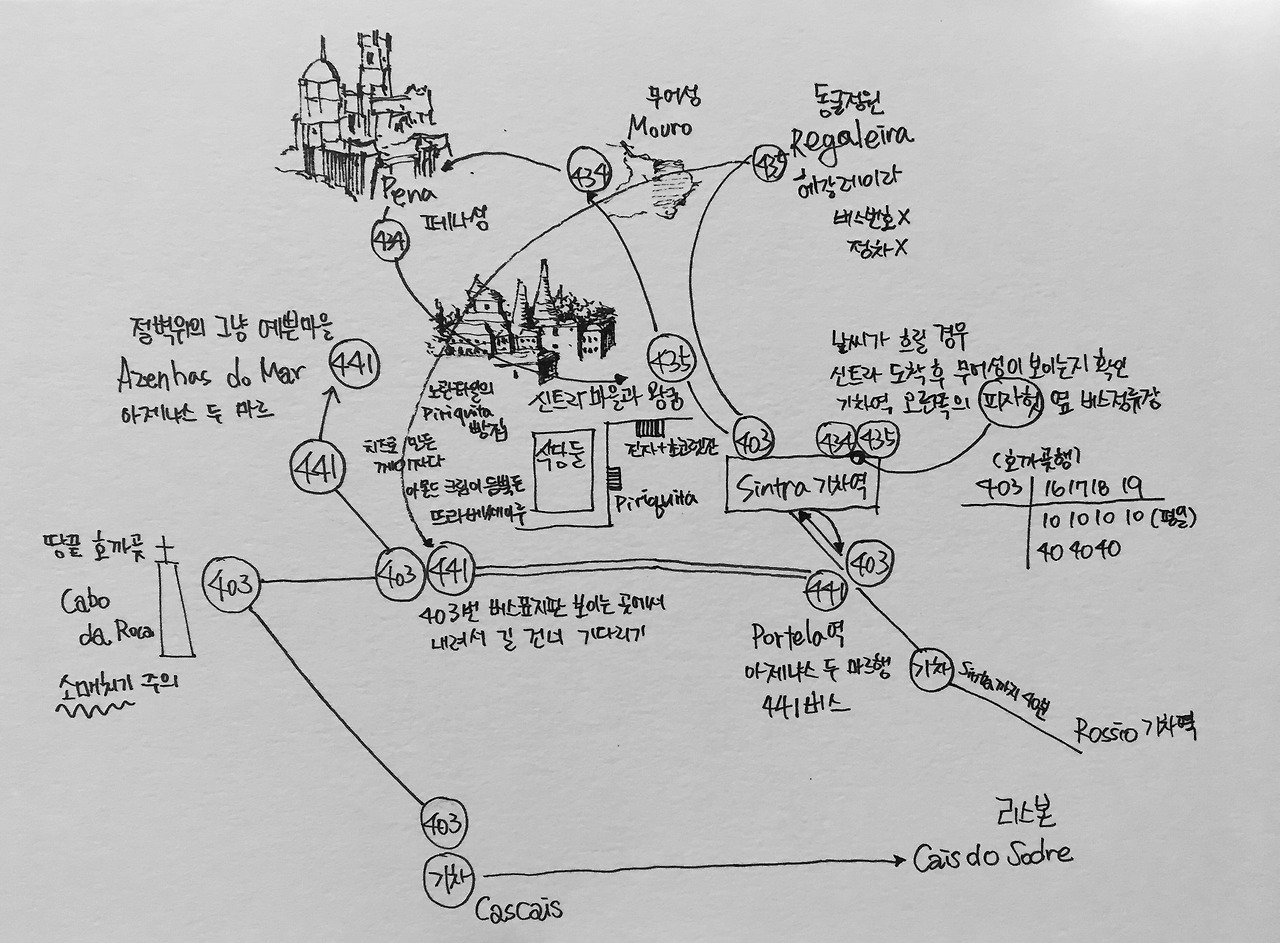 무어성
Mouro
동글정원
Regaleira
헤갈레이라
버스번호 X
정차 X
435
434
Pena
페나성
434
절벽위의 그냥 예쁜마을
Azenhas do Mar
아제냐스 두 마르
441
441
435
날씨가 흐릴 경우
신트라 도착 후 무어성이 보이는지 확인
기차역 오른쪽의 피자헛 옆 버스정류장
노란타일의
Piriquita
빵집
신트라 마을과 왕궁
치즈로 만든
께이자다
아몬드 크림이 듬뿍든
뜨라베세이루
식당들
진자+초코렛잔
Piriquita
403
434
435
Sintra 기차역
(호까곶행)
403 16 17 18 19
10 10 10 10 (평일)
40 40 40
땅끝 호까곶
Cabo
da Roca
소매치기 주의
403
403
441
403번 버스표지판 보이는 곳에서
내려서 길 건너 기다리기
441
403
Portela역
아제냐스 두 마르행
441버스
기차
Sintra까지 40분
Rossio 기차역
403
기차
Cascais
리스본
Cais do Sodre